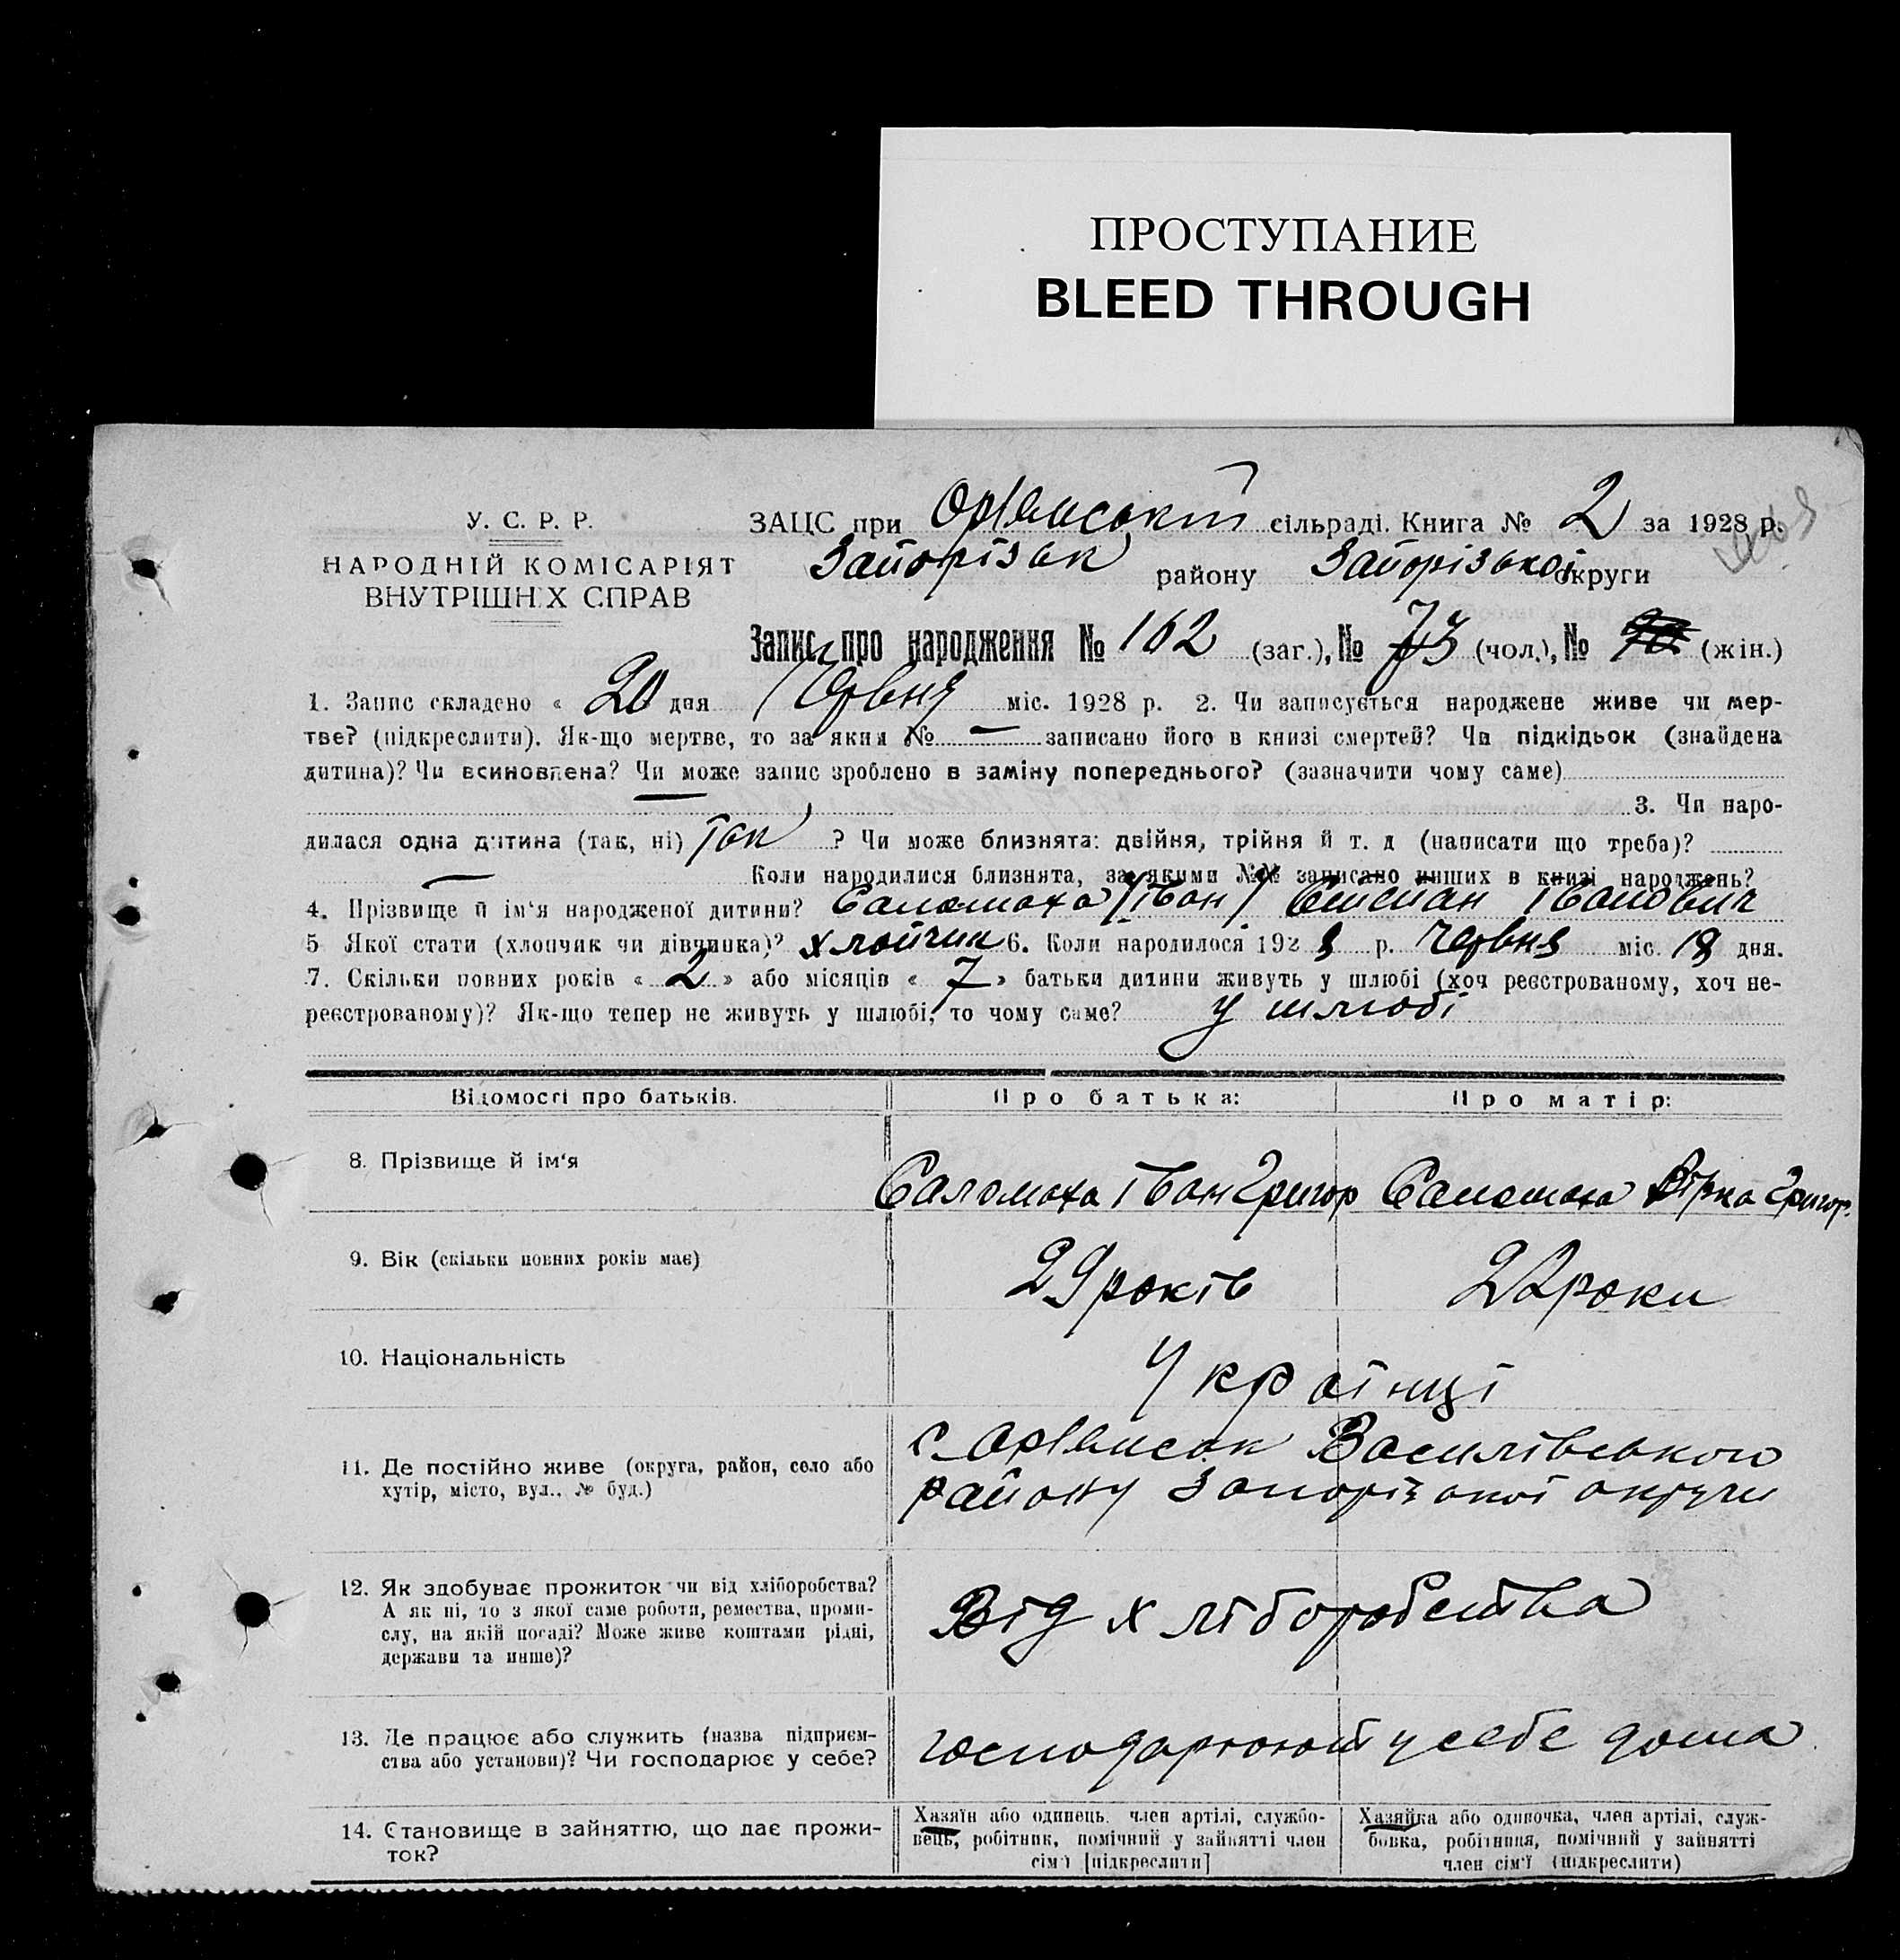 ПРОСТУПАНИЕ
BLEED THROUGH
У. С. Р. Р.
НАРОДНІЙ КОМІСАРІЯТ
ВНУТРІШНІХ СПРАВ
ЗАЦС при Орлянській сільраді. Книга № 2 за 1928 р.
Запорізьк району Запорізької округи
Запис про народження № 162 (заг.), № 73 (чол.), № (жін.)
1. Запис складено « 20 дня Червня міс. 1928 р. 2. Чи записується народжене живе чи мер-
тве? (підкреслити). Як-що мертве, то за яким № — записано його в книзі смертей? Чи підкідьок (знайдена
дитина)? Чи всиновлена? Чи може запис зроблено в заміну попереднього? (зазначити чому саме)
— 3. Чи наро-
дилася одна дитина (так, ні) так ? Чи може близнята: двійня, трійня й т. д (написати що треба)?
— Коли народилися близнята, за якими №№ записано инших в книзі народжень?
4. Прізвище й ім'я народженої дитини? Саломаха /Іван/ Степан Іванович
5 Якої стати (хлопчик чи дівчинка)? хлопчик 6. Коли народилося 1928 р. червня міс. 18 дня.
7. Скільки повних років « 2 » або місяців « 7 » батьки дитини живуть у шлюбі (хоч реєстрованому, хоч не-
реєстрованому)? Як-що тепер не живуть у шлюбі, то чому саме? у шлюбі
Відомості про батьків. Про батька: Про матір:
8. Прізвище й ім'я Саломаха Іван Григор Саломаха Вірка Григор.
9. Вік (скільки повних років має) 29 років 22 роки
10. Національність Українці
11. Де постійно живе (округа, район, село або
хутір, місто, вул., № буд.)
с. Орлянськ Василівського
району Запорізокої округи
12. Як здобуває прожиток чи від хліборобства?
А як ні, то з якої саме роботи, ремества, проми-
слу, на якій посаді? Може живе коштами рідні,
держави та инше)?
Від хліборобства
13. Де працює або служить (назва підприєм-
ства або установи)? Чи господарює у себе?
господарюють у себе дома
14. Становище в зайняттю, що дає прожи-
ток?
Хазяїн або одинець. член артілі, службо-
вець, робітник, помічний у зайнятті член
сім'ї [підкреслити]
Хазяйка або одиночка, член артілі, служ-
бовка, робітниця, помічний у зайнятті
член сім'ї (підкреслити)